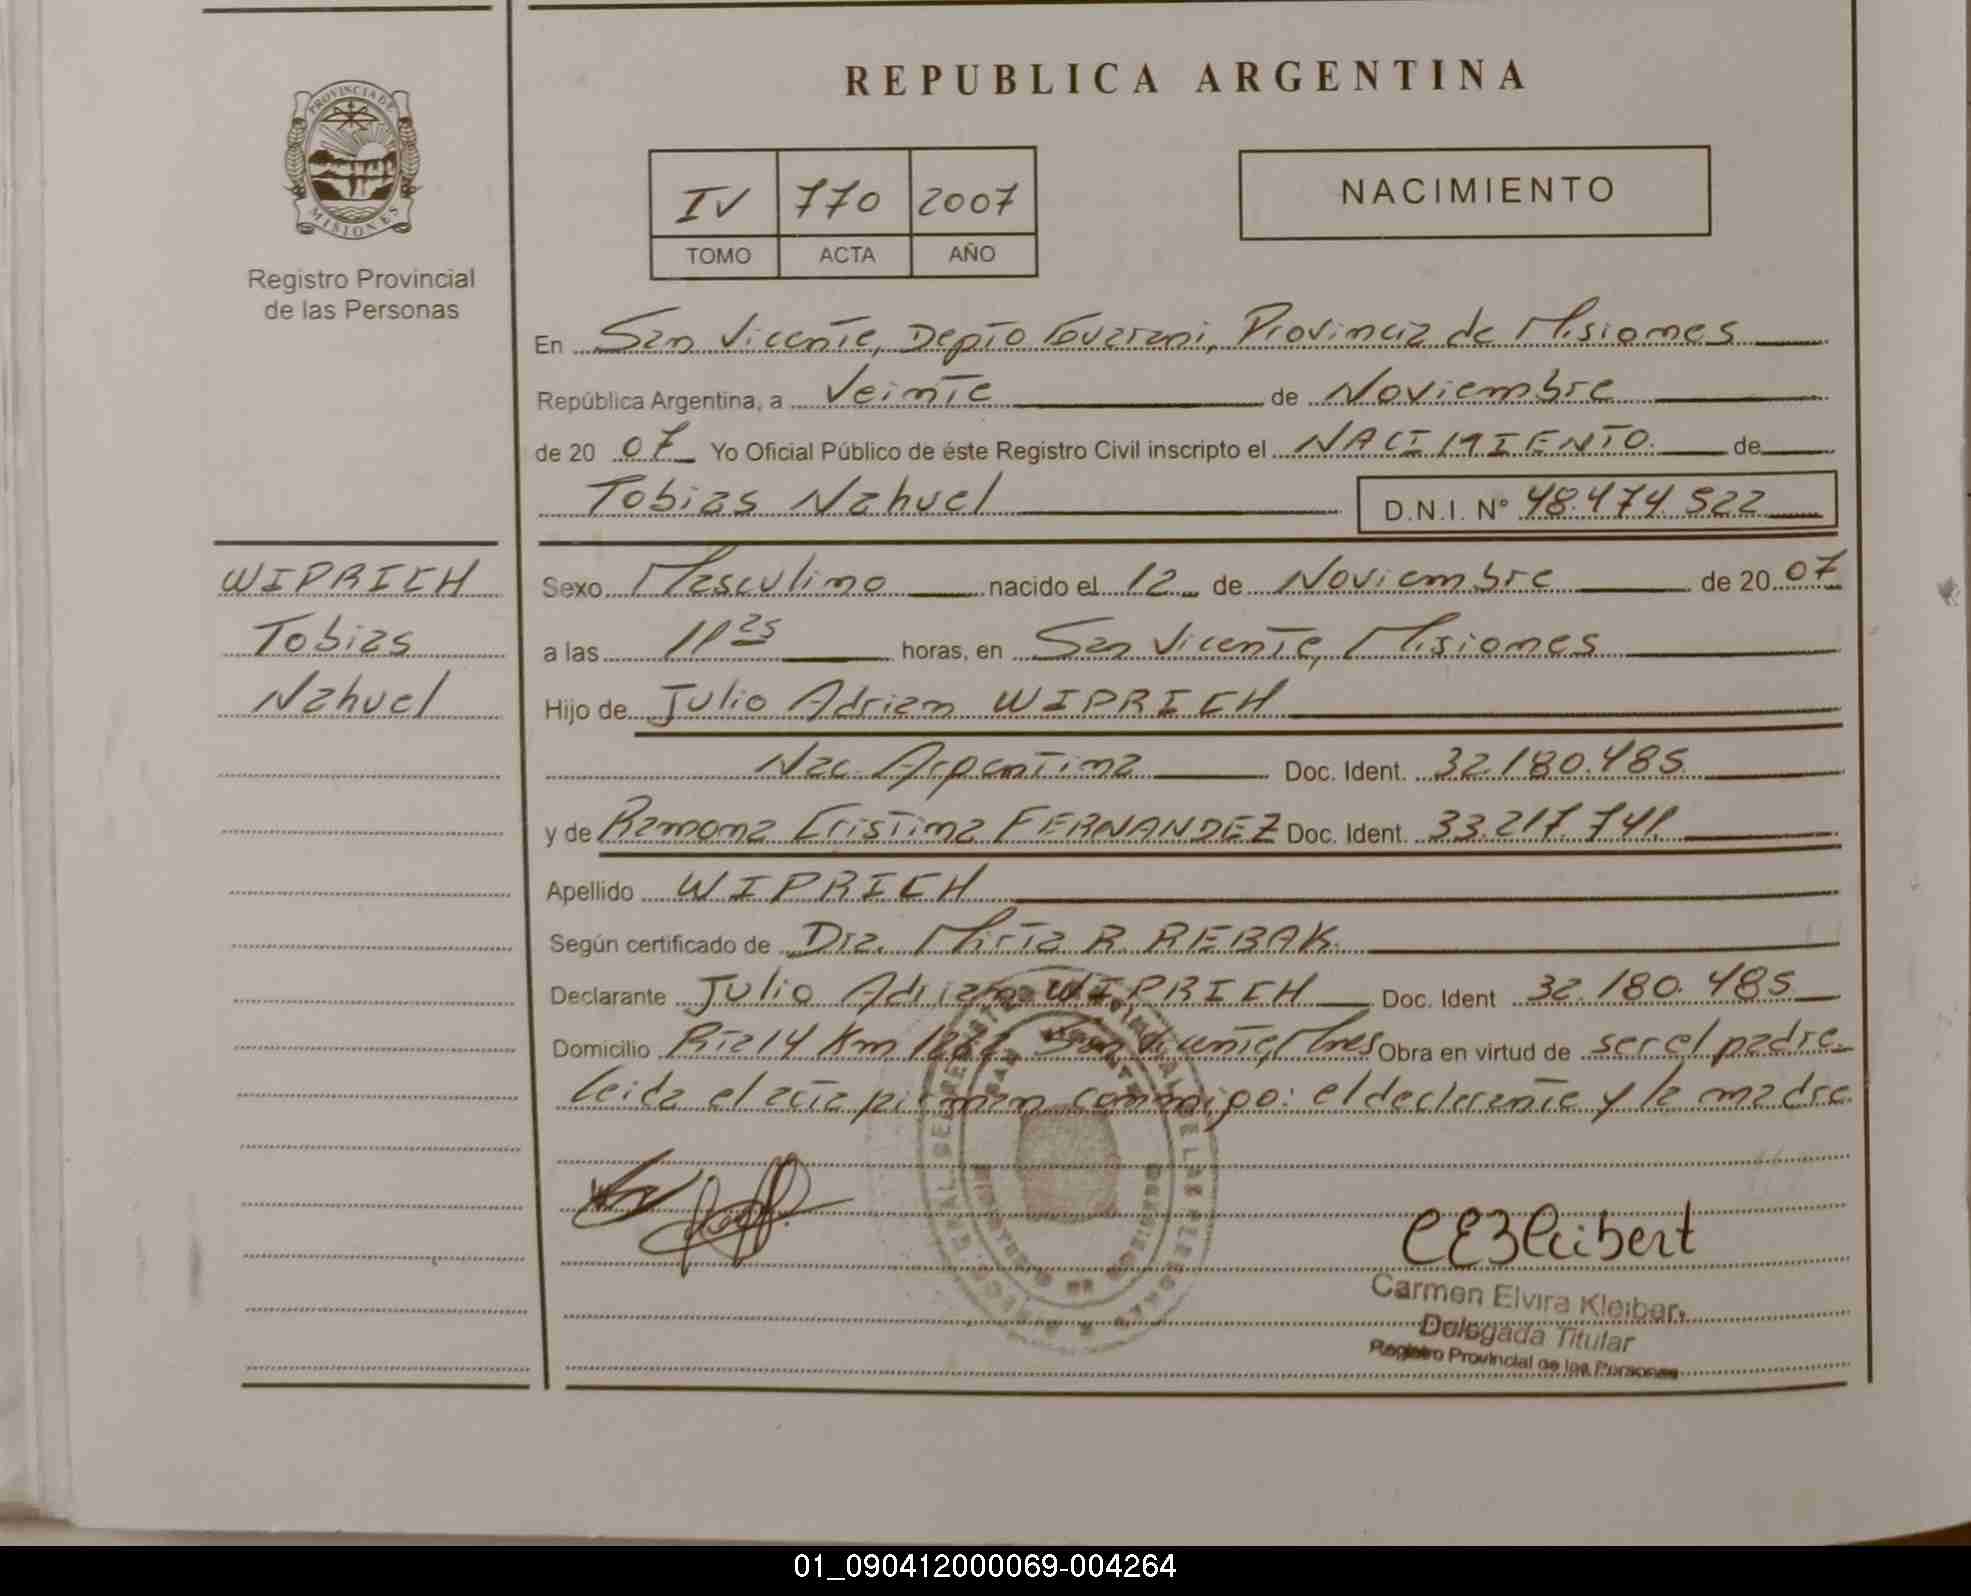 REPUBLICA ARGENTINA
PROVINCIA DE
MISIONES
Registro Provincial
de las Personas
IV 770 2007
TOMO ACTA AÑO
NACIMIENTO
En San Vicente, Depto Guarani, Provincia de Misiones
República Argentina, a Veinte de Noviembre
de 20 07 Yo Oficial Público de éste Registro Civil inscripto el NACIMIENTO de
Tobias Nahuel D.N.I. Nº 48.474.522
WIPRICH
Tobias
Nahuel
Sexo Masculino nacido el 12 de Noviembre de 20 07
a las 11 25 horas, en San Vicente, Misiones
Hijo de Julio Adrian WIPRICH
Nac. Argentina Doc. Ident. 32.180.485
y de Ramona Cristina FERNANDEZ Doc. Ident. 33.217.741
Apellido WIPRICH
Según certificado de Dra. Mirta R. REBAK
Declarante Julio Adrian WIPRICH Doc. Ident 32.180.485
Domicilio Rta 14 Km San Vicente, Mnes Obra en virtud de ser el padre
leida el acta firman conmigo: el declarante y la madre
Carmen Elvira Kleibert
Delegada Titular
Registro Provincial de las Personas
01_090412000069-004264